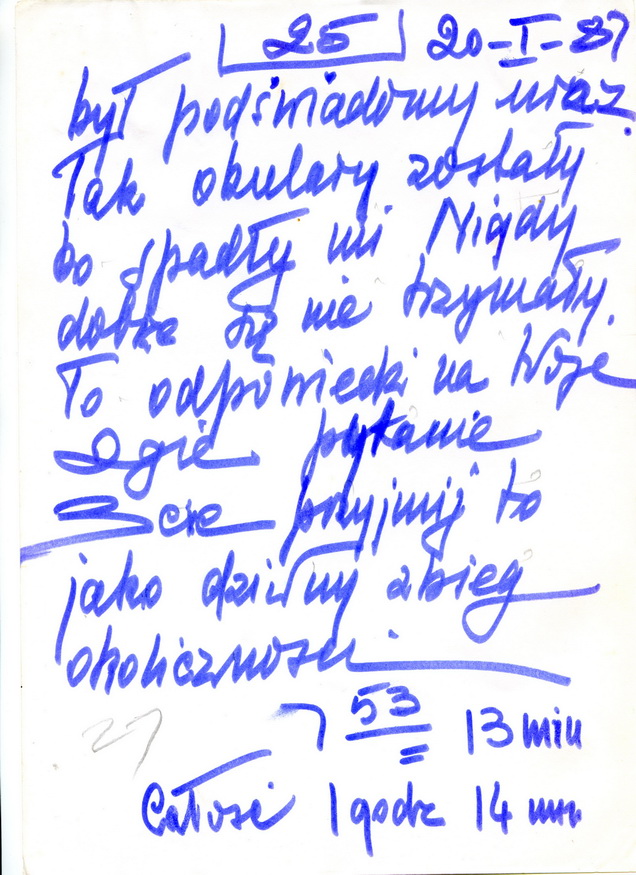 25 20-I-87
był podświadomy uraz.
Tak okulary zostały
bo spadły mi Nigdy
dobrze się nie trzymały.
To odpowiedzi na Twoje
2gie pytanie
3cie przyjmij to
jako dziwny zbieg
okoliczności.
7 53 13 min
27
Całość 1 godz 14 min.